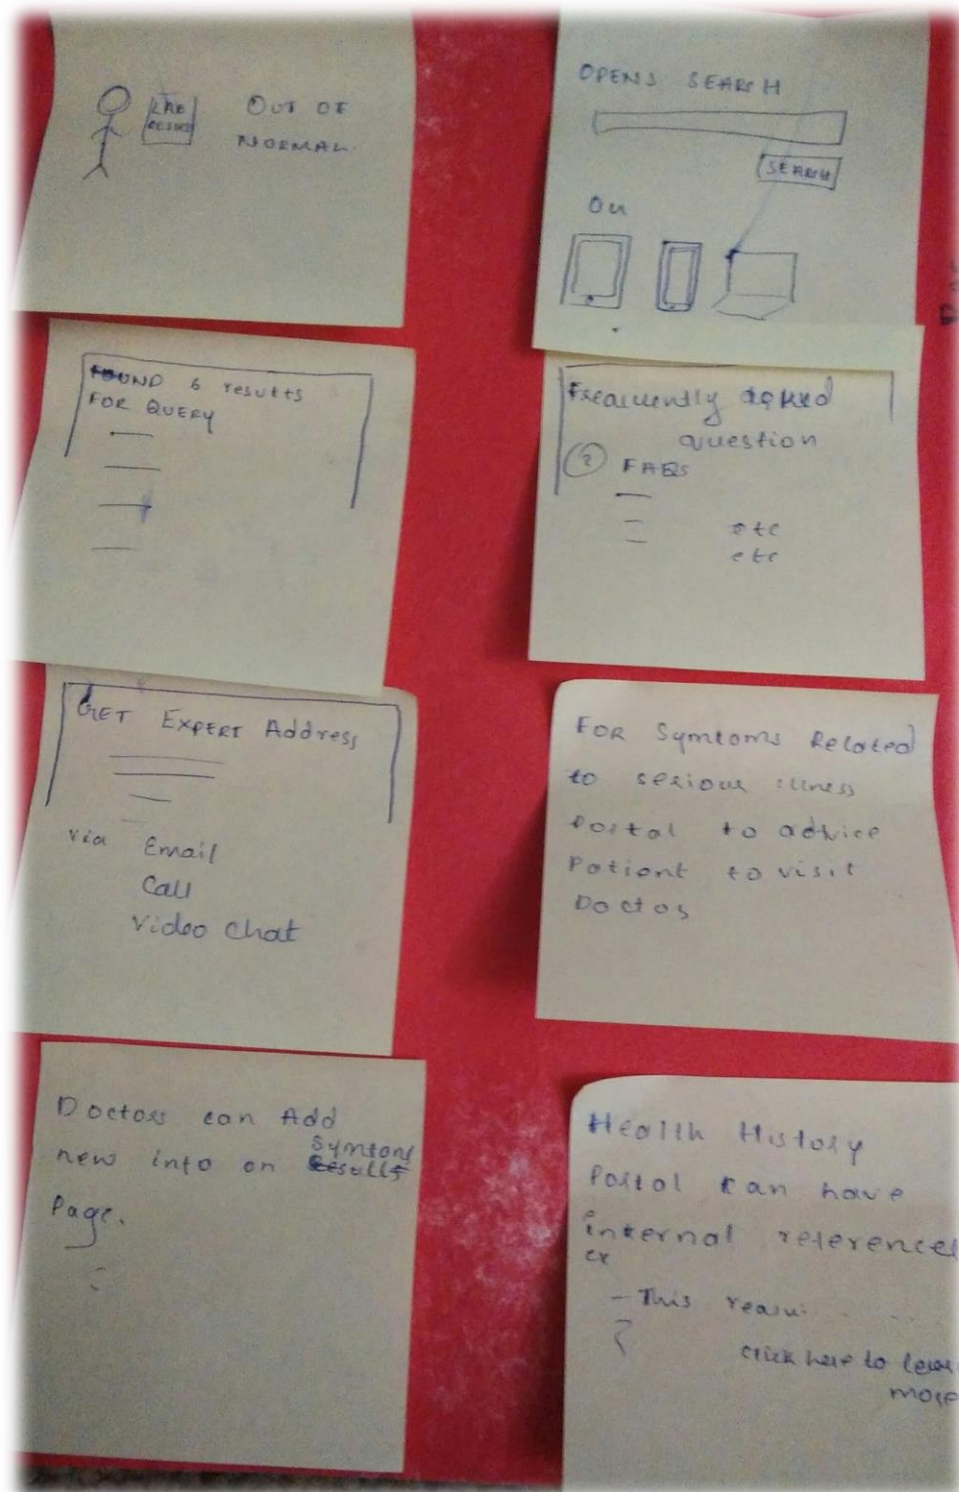 LAB
OUT OF
NORMAL
OPENS SEARCH
SEARCH
ON
FOUND 6 results
FOR QUERY
Frequently asked
question
? FAQs
etc
etc
GET EXPERT Address
via Email
Call
Video Chat
FOR Symtoms Related
to serious illness
Portal to advice
Patient to visit
Doctor
Doctors can Add
new info on Symtoms
Page.
Health History
Portal can have
internal references
ex
- This
click here to
more